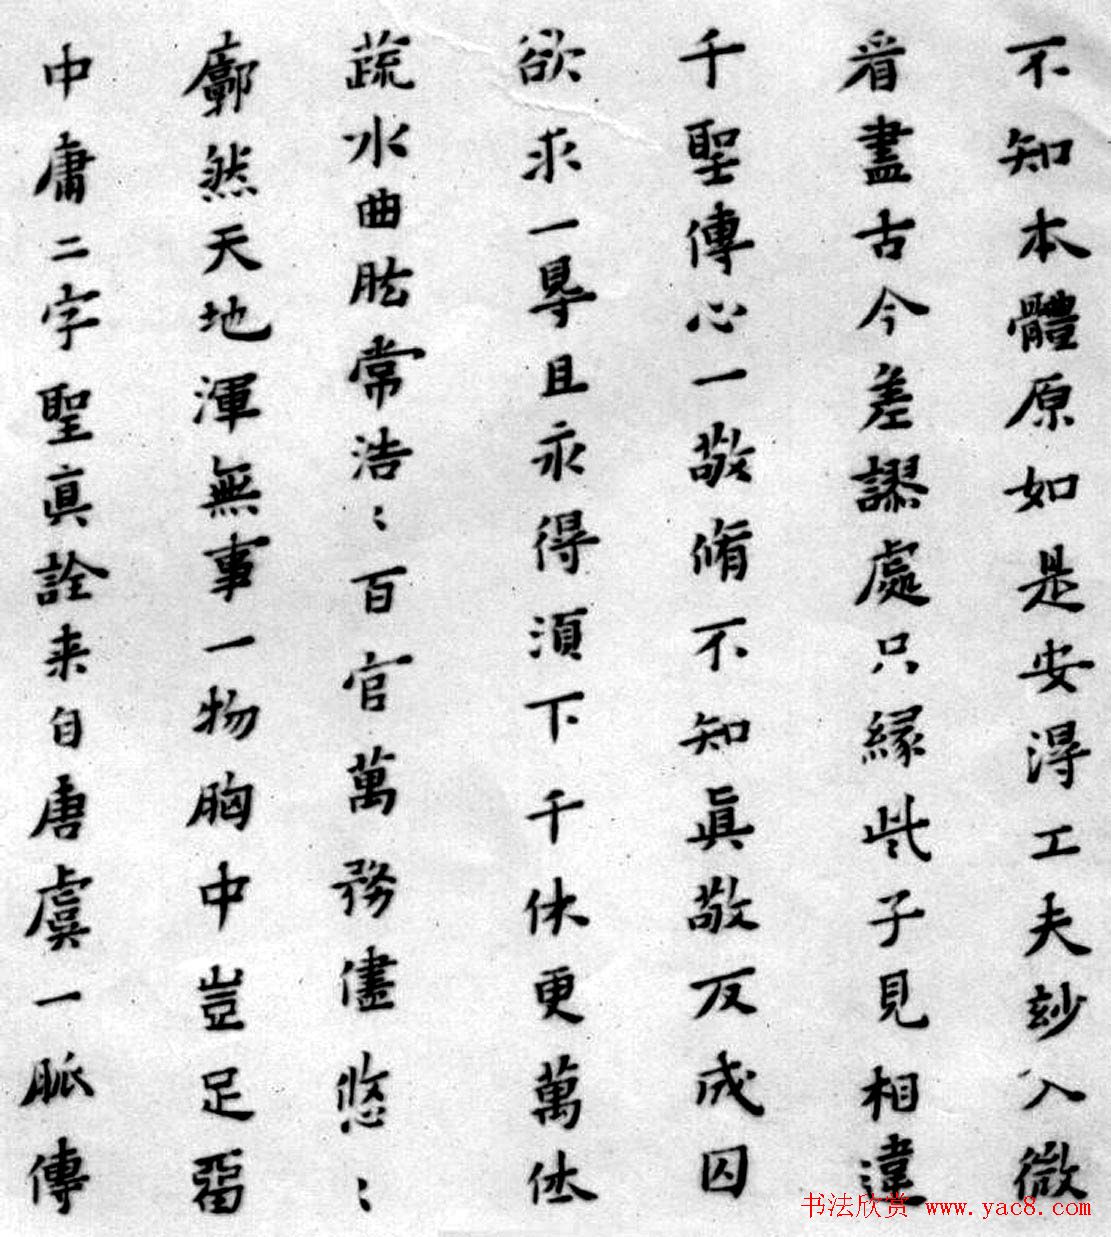 不知本體原如是安得工夫玅入微
看盡古今差謬處只緣此子見相違
千聖傳心一敬脩不知眞敬反成囚
欲求一㝵且永得須下千休更萬休
蔬水曲肱常浩:百官萬務儘悠:
廓然天地渾無事一物胸中豈足畱
中庸二字聖眞詮来自唐虞一脈傳
书法欣赏 www.yac8.com